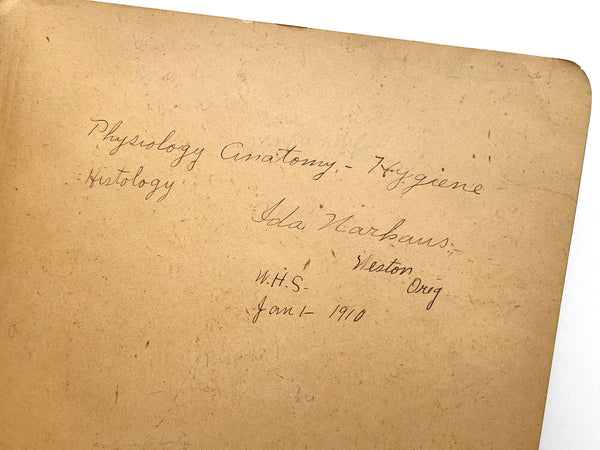 Physiology Anatomy - Hygiene
Histology
Ida Narkaus
Weston
Orig
W.H.S.
Jan 1- 1910